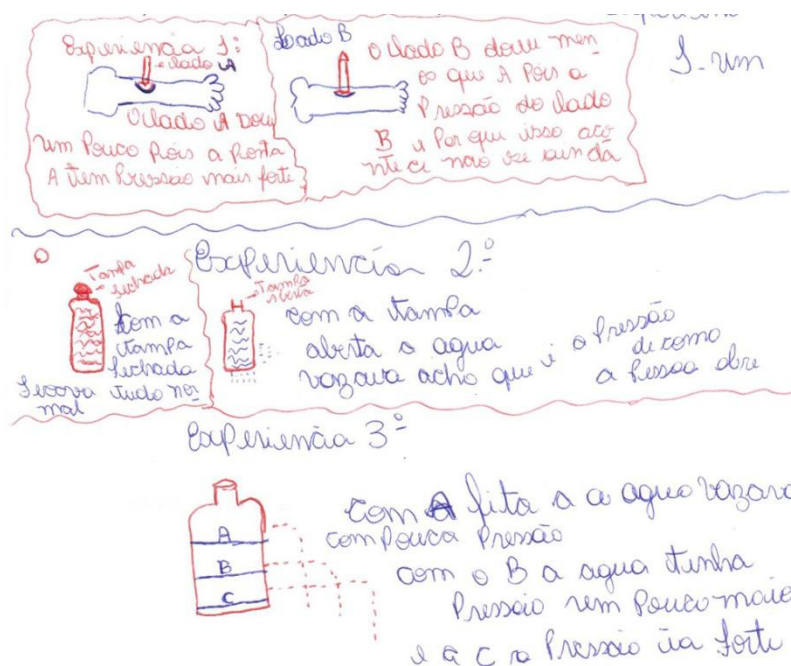 Experiencia 1:
lado A
O lado A doeu
um Pouco Pois a Ponta
A tem Pressão mais forte
Lado B
O lado B doeu men
os que A Pois a
Pressão do lado
B e Por que isso aco
ntece não sei ainda
1-um
Experiencia 2º
Tampa
fechada
com a
tampa
fechada
ficava tudo nor
mal
Tampa
aberta
com a tampa
aberta a agua
vazava acho que é a Pressão
de como
a Pessoa abre
Experiencia 3º
A
B
C
com A fita a a agua vazava
com Pouca Pressão
com o B a agua tinha
Pressão um Pouco maio
e a C a Pressão forte